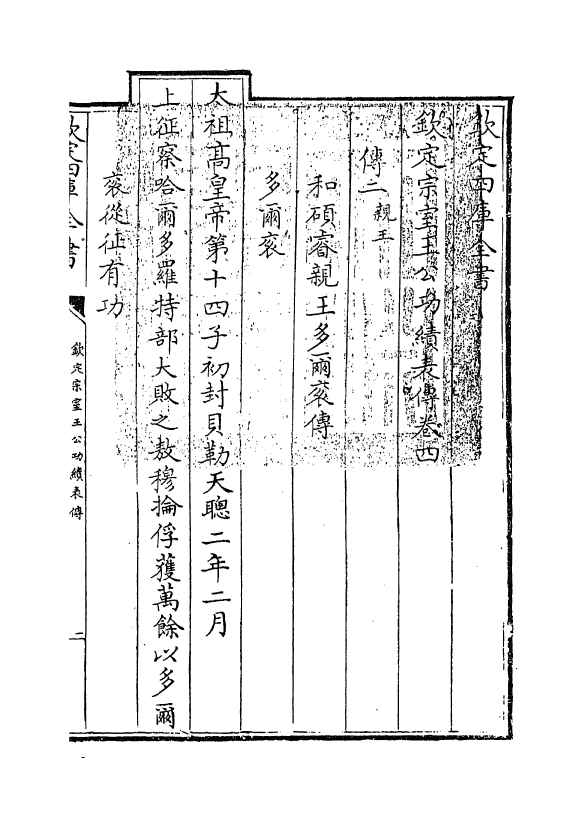 欽定四庫全書
欽定宗室王公功績表傳卷四
傳二親王
和碩睿親王多爾袞傳
多爾袞
太祖高皇帝第十四子初封貝勒天聰二年二月
上征察哈爾多羅特部大敗之敖穆掄俘獲萬餘以多爾
袞從征有功
欽定四庫全書
欽定宗室王公功績表傳